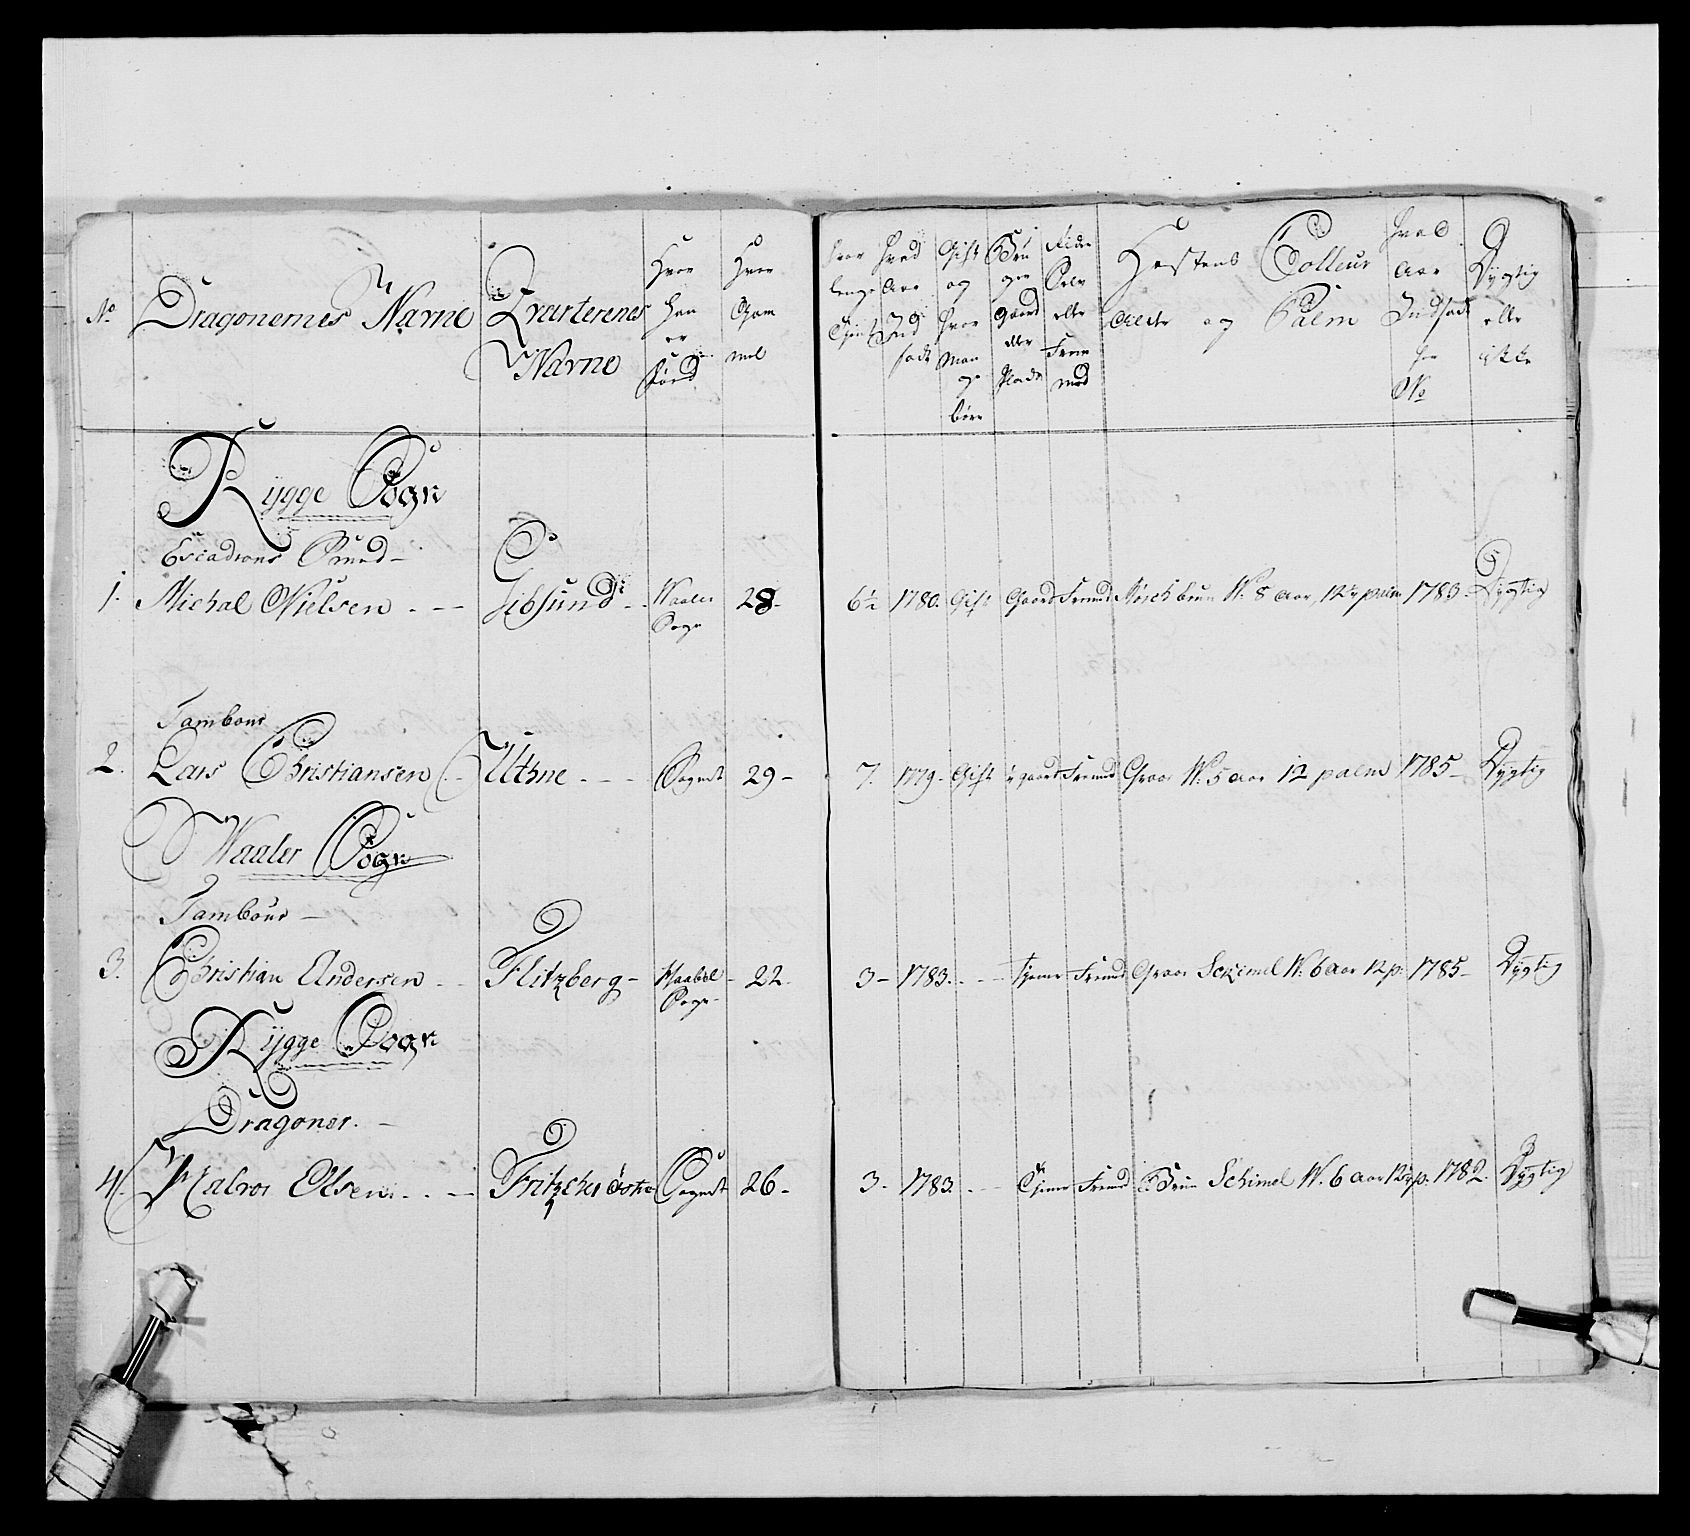 No
Dragonernes Navne
Qvarterenes
Navne
Hvor
han
er
Född
Hvor
Gam
mel
hvor
lenge
Tient
hvad
Aar
Ind
sadt
Gift
og
hvor
Man
ge
börn
Bru
ger
Gaard
eller
Plads
Selv
eller
Frem
med
Hestens Colleur
Alder og Palm
hvad
Aar
Indsadt
for
No
Dygtig
eller
ikke
Rygge Sogn
Escadrons Smed
1. Michal Nielsen Waaler Sogn 28 6½ 1780. Gift Gaard Fremd brun W. 8 aar, 12½ palm 1783 Dygtig
Tambour
2. Lars Christiansen Uthne Sognet 29 7. 1779 Gift ½ gaard Fremd Graae W. 5 aar 12 palm 1785 Dygtig
Waaler Sogn
Tambour
3. Christian Andersen Flitzberg Sogn 22 3 1783. tjener Fremd Graae Schimel W. 6 aar 12 p. 1785 Dygtig
Rygge Sogn
Dragoner.
4. Halvor Olsen Sognet 26 3 1783. Tjener Fremd Brun Schimel W. 6 aar 12½ p. 1782. Dygtig